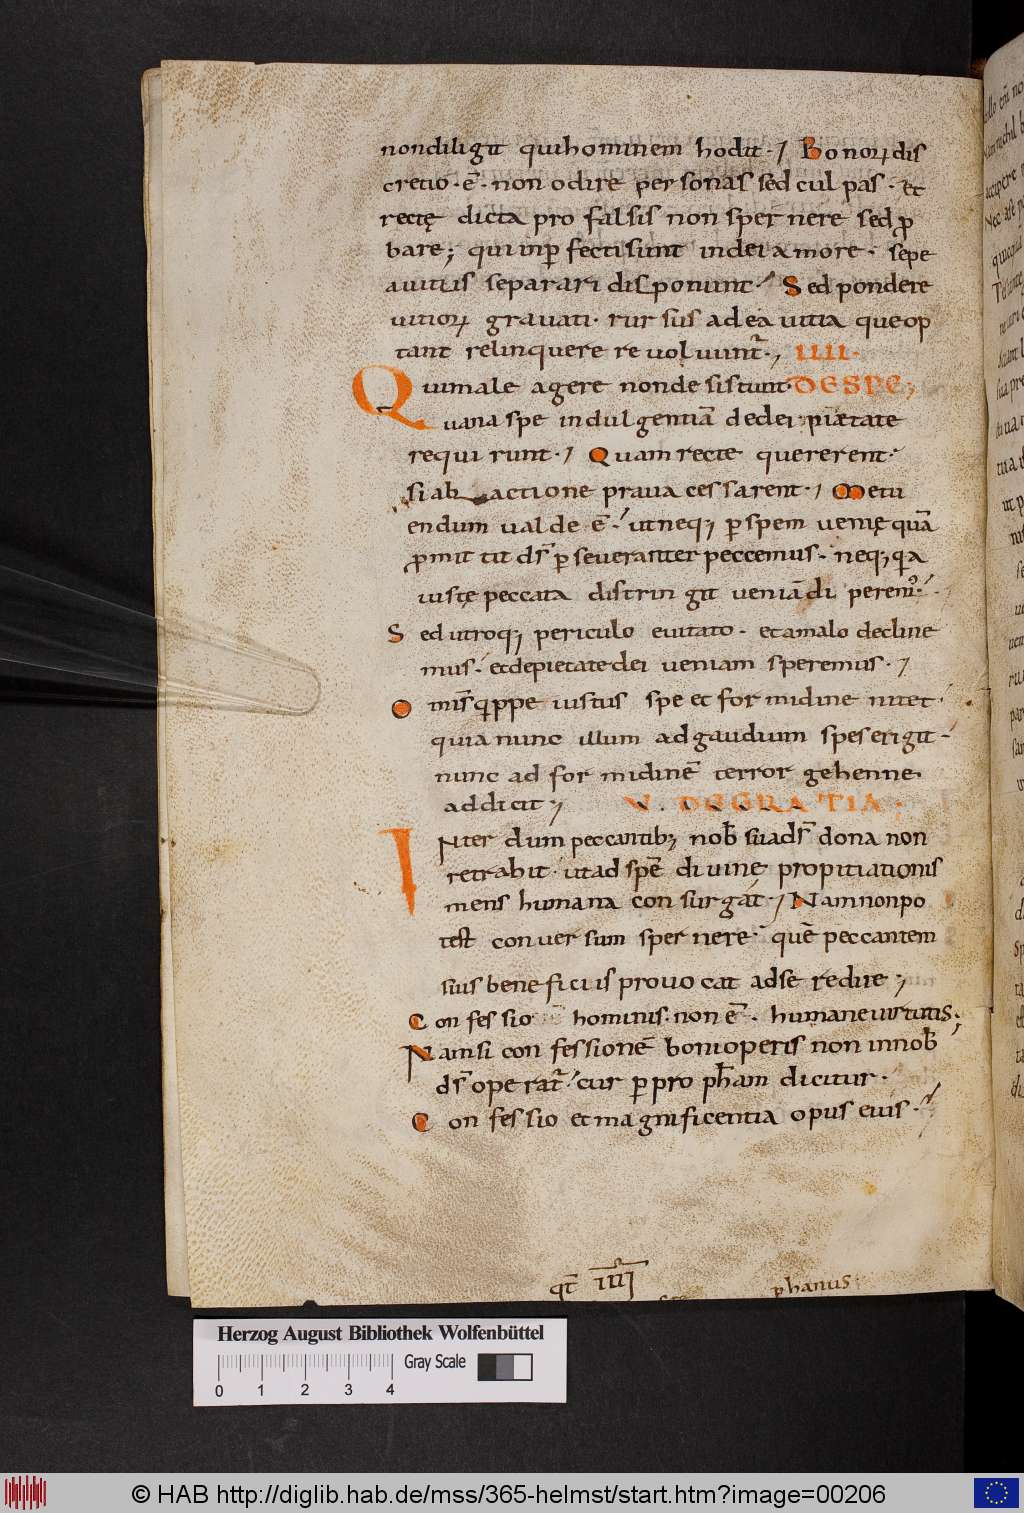 nondiligit quihominem hodit·; Bonoꝝ dis
cretio·ē·non odire personas sed culpas·et
rectę dicta pro falsis non spernere sed ꝓ
bare; qui inꝑfecti sunt indei amore· sepe
auitiis separari disponunt· Sed pondere
uitioꝝ grauati· rursus adea uitia que op
tant relinquere reuoluunt᷑·; IIII·
Qui male agere non desistunt· DE SPE;
uana spe indulgentiā dedei piętate
requirunt·; Quam recte quererent·
siab actione praua cessarent·; Metu
endum ualde ē· ut neqꝫ ꝑ spem uenię quā
ꝓmittit ds̄ ꝑseueranter peccemus· neqꝫ q̇a
iustę peccata distringit ueniā diperem᷒·
Sed utroqꝫ periculo euitato· et amalo decline
mus· et depietate dei ueniam speremus·;
Omīs quippe iustus spe et formidine nitet·
quia nunc illum adgaudium spes erigit·
nunc ad formidinē terror gehenne
addicit·; V· DE GRATIA·
INterdum peccantibꝫ nob̄ sua ds̄ dona non
retrahit· ut ad spē diuinę propitiationis
mens humana consurgat·; Nam non po
test conuersum spernere· quē peccantem
suis beneficiis prouocat adse redire·;
Confessio hominis· non ē· humane uirtutis·;
Nam si confessionē boni operis non in nob̄
ds̄ operat᷑· cur ꝑ prop̄ham dicitur·
Confessio et magnificentia opus eius·
qt̄ iiii
phanus
Herzog August Bibliothek Wolfenbüttel
Gray Scale
0 1 2 3 4
© HAB http://diglib.hab.de/mss/365-helmst/start.htm?image=00206